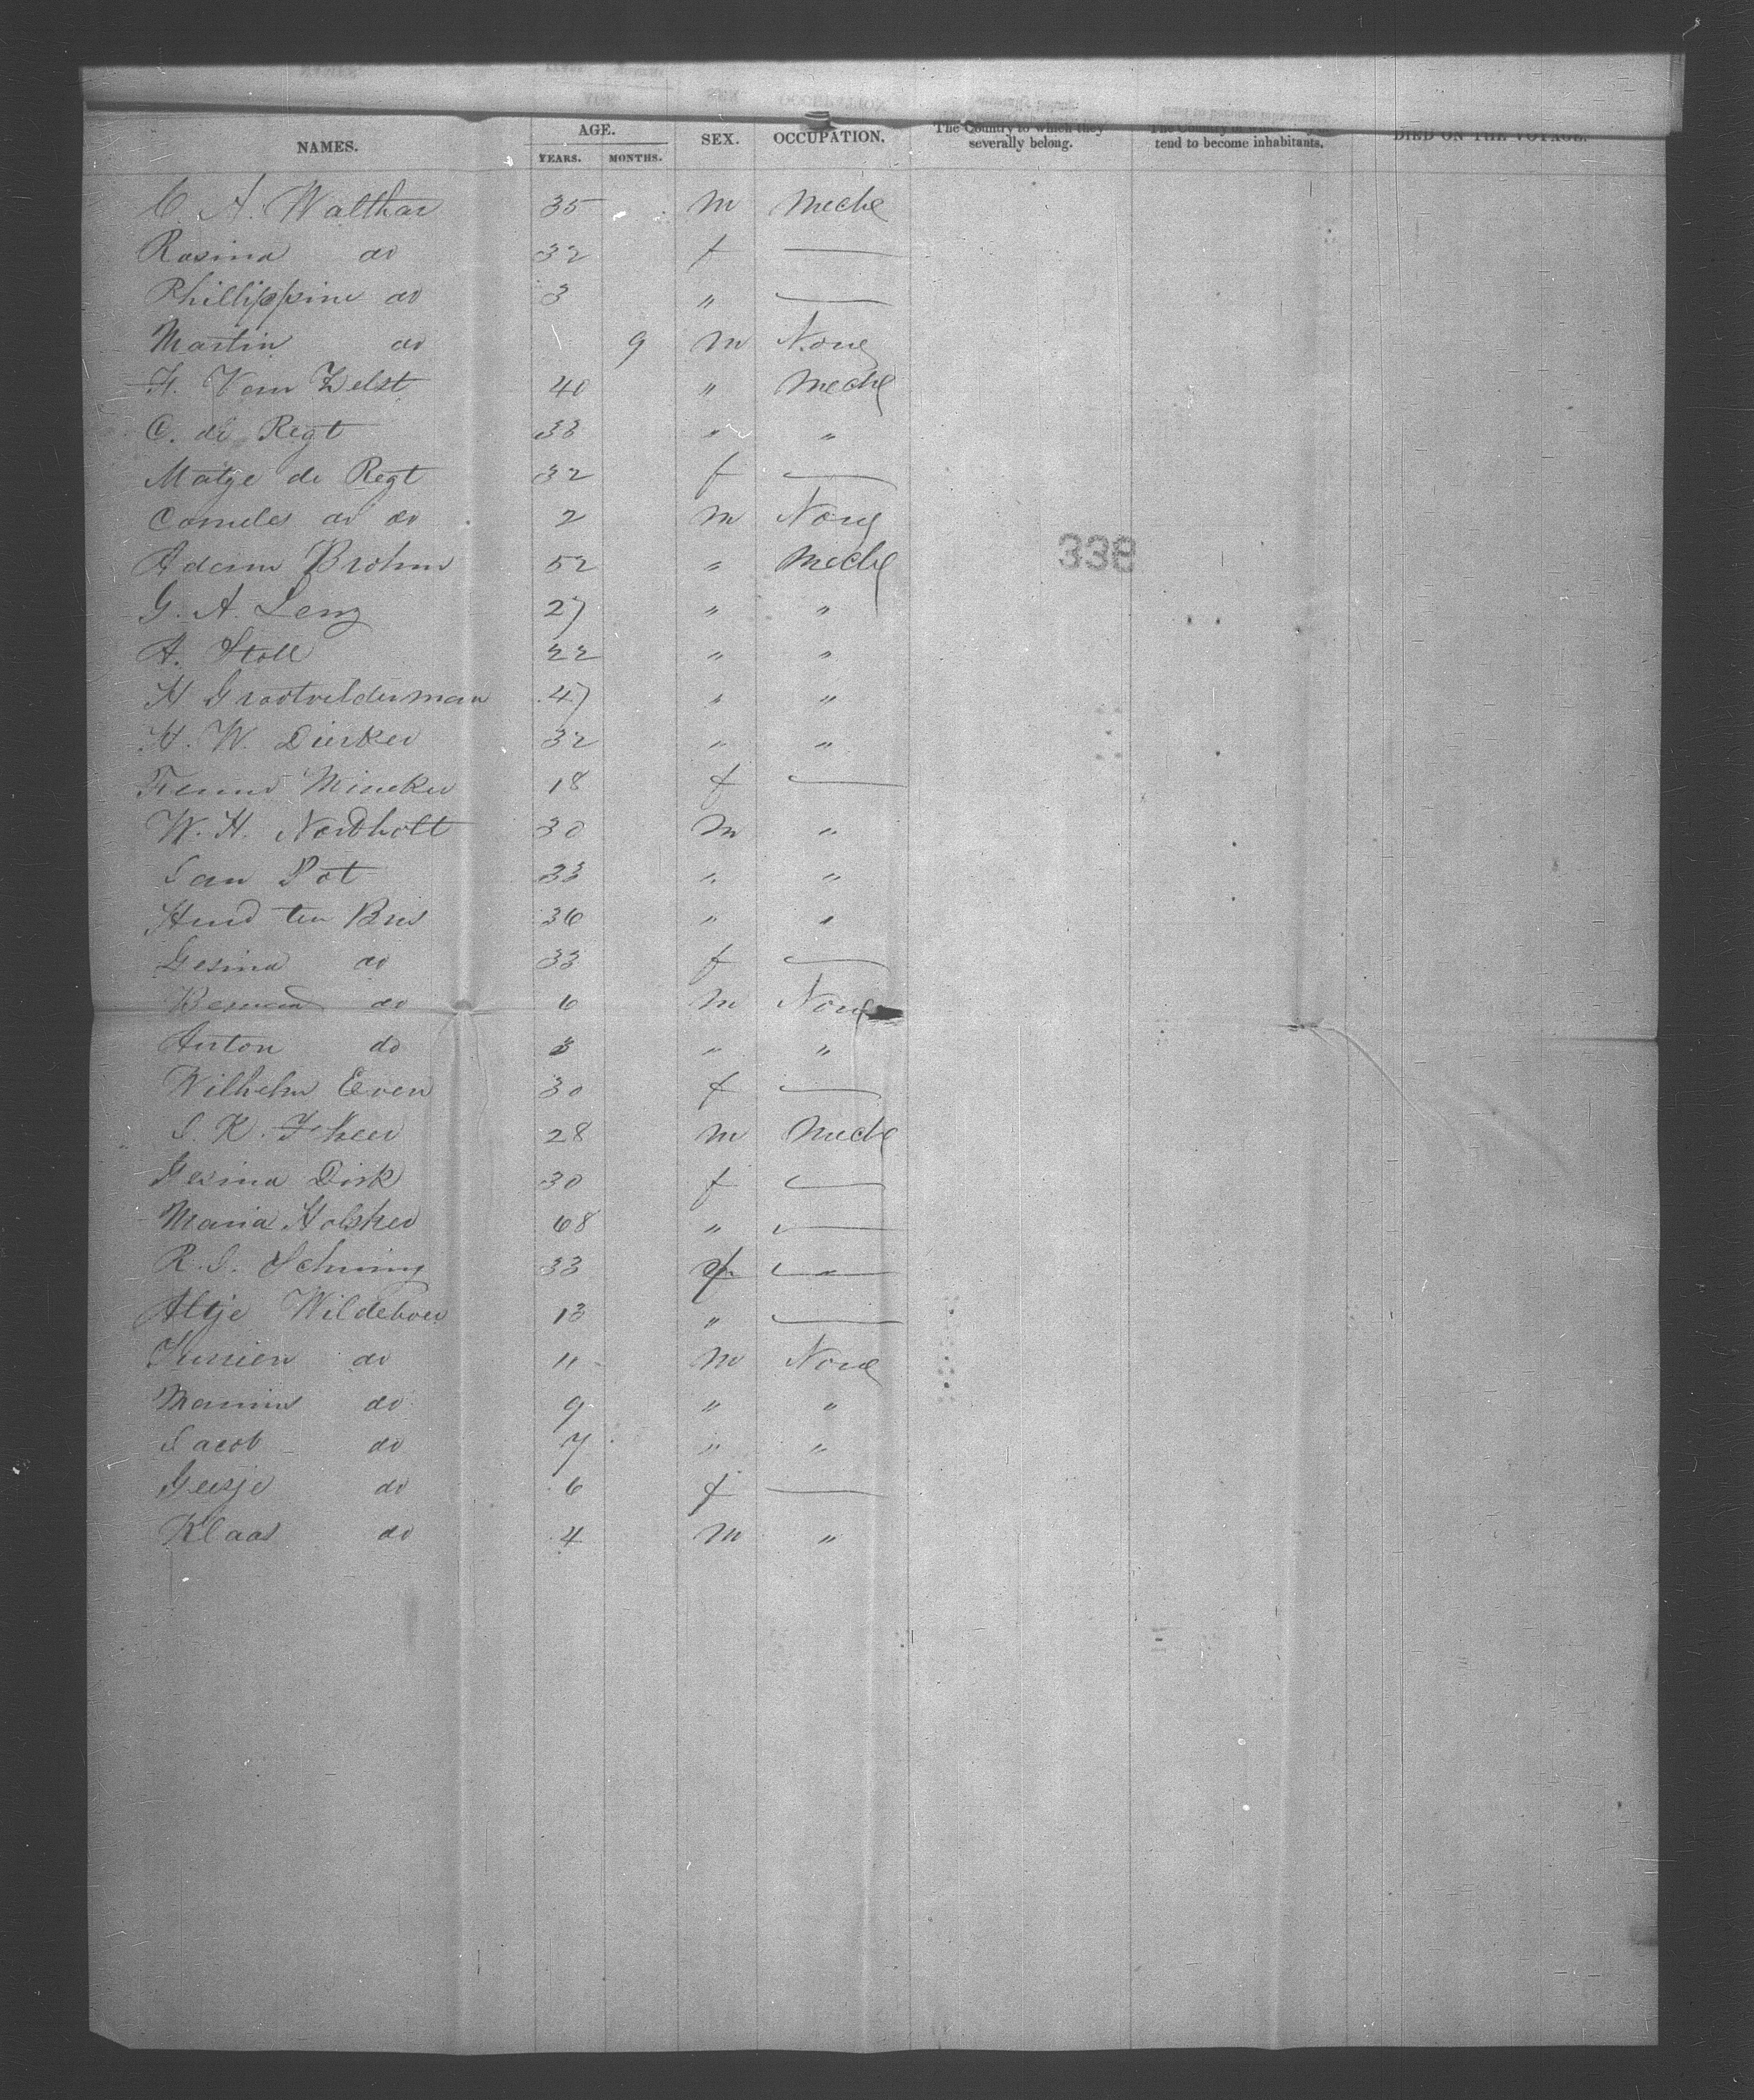 NAMES. AGE. YEARS. MONTHS. SEX. OCCUPATION. The Country to which they severally belong. tend to become inhabitants. DIED ON THE VOYAGE.
C. A. Walthar 35 m Meche
Rosina do 32 f —
Phillippine do 3 " —
Martin do 9 m None
H. Van Zelst 40 " Meche
C. de Regt 33 " "
Matje de Regt 32 f —
Corneles do do 2 m None
Adam Brohm 52 " Meche
338
G. A. Lenz 27 " "
A. Stoll 22 " "
H Grootvelderman 47 " "
H. W. Dierker 32 " "
Mineker 18 f —
W. H. Nordholt 30 m "
Jan Pot 33 " "
ten Bris 36 " "
Gesina do 33 f —
do 6 m None
Anton do 3 " "
Wilhelm Even 30 f —
J. K. 28 m Meche
Gesina Dirk 30 f —
Maria Holsher 68 " —
R. J. 33 f —
Altje Wildeboer 13 " —
Jurrien do 11 m None
do 9 " "
Jacob do 7 " "
Geesje do 6 f —
Klaas do 4 m "